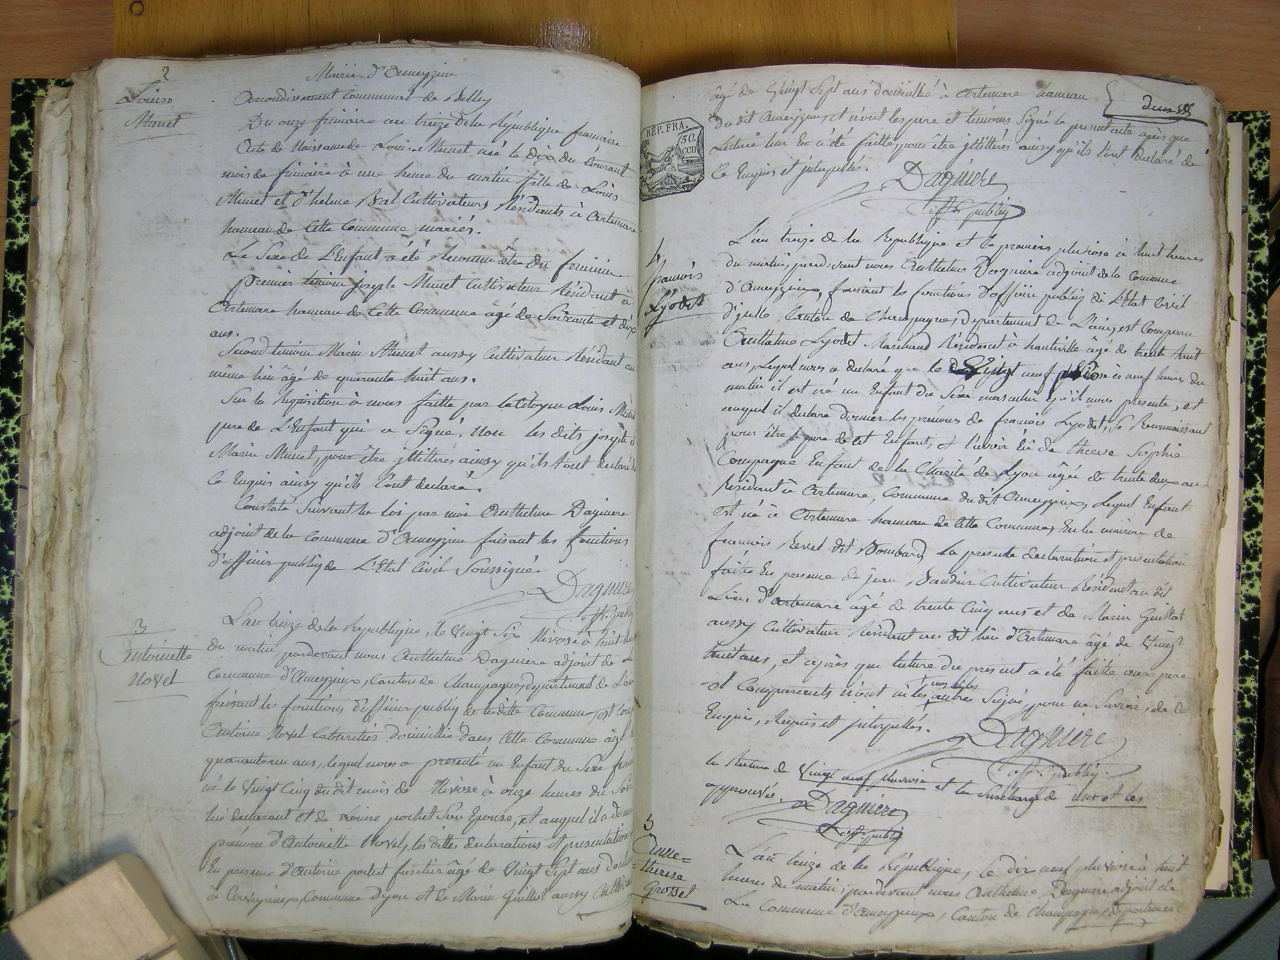 2
Mairie d'Ameyzieu
Louise
Minet
Arrondissement communal de Belley
Du onze frimaire an treize de la République française
Acte de Naissance de Louise Minet née le dix du courant
mois de frimaire à une heure du matin fille de Louis
Minet et d'helene Cultivateurs Résidants à Artemare
hameau de Cette Commune mariés.
Le Sexe de L'Enfant a été Reconnu être du feminin
premier temoin joseph Minet Cultivateur Résidant à
Artemare hameau de Cette Commune âgé de Soixante et dix
ans.
Second temoin Marin Minet aussy Cultivateur Résidant au
même lieu âgé de quarante huit ans.
Sur la Requisition à nous faitte par le Citoyen Louis Minet
pere de L'Enfant qui a Signé, Non les dits joseph et
Marin Minet, pour être illitteres ainsy qu'ils l'ont declaré
ce Enquis ainsy qu'ils l'ont declaré.
Constaté Suivant la loi par moi Anthelme Daguiere
adjoint de la Commune d'Ameyzieu faisant les fonctions
d'officier public de L'Etat Civil Soussigné.
Daguiere
off. public
3
Antoinette
Novel
L'an treize de la Republique, le Vingt Six Nivose à huit heures
du matin, pardevant nous Anthelme Daguiere adjoint de la
Commune d'Ameyzieux, Canton de Champagne, departement de L'ain
faisant les fonctions d'officier public de la ditte Commune, est Comparu
Antoine Novel Cabaretier domicilié dans Cette Commune âgé de
quarante ans, lequel nous a presenté un Enfant du Sexe feminin
né le Vingt Cinq du dit mois de Nivose à onze heures du Soir
lui declarant et de pochet Son Epouse, et auquel il a donné
prenom d'Antoinette Novel, les dittes declarations et presentations
En presence d'Antoine pochet âgé de Vingt Sept ans
à Commune d'yon et de Marin Guillot aussy
âgé de Vingt Sept ans domicilié à Artemare hameau
du dit Ameyzieux, et n'ont les pere et temoins Signé le present acte après que
Lecture leur en a été faitte, pour être illitteres ainsy qu'ils l'ont declaré de
ce Enquis et interpellés.
deux
REP. FRA.
50.
CEN
Daguiere
off. public
4
francois
Lyodet
L'an treize de la Republique et le premier pluviose à huit heures
du matin, pardevant nous Anthelme Daguiere adjoint de la Commune
d'Ameyzieux, faisant les fonctions d'officier public de l'Etat Civil
d'jcelle, Canton de Champagne, Departement de L'ain, est Comparu
Anthelme Lyodet Marchand Résidant à hauteville âgé de trente huit
ans, Lequel nous a declaré que le Vingt neuf à neuf heures du
matin il est né un Enfant du Sexe masculin qu'il nous presente, et
auquel il declare donner les prenoms de francois Lyodet, Se Reconnaissant
pour être le pere de cet Enfant, et l'avoir Eû de therese Sophie
Compagne Enfant de la Charité de Lyon âgée de trente deux ans
Residant à Artemare, Commune du dit Ameyzieux, Lequel Enfant
est né à Artemare hameau de Cette Commune, En la maison de
francois Revel dit Bombard La presente declaration et presentation
faitte En presence de jean Cultivateur Résidant au dit
Lieu d'Artemare âgé de trente Cinq ans et de Marin Guillot
aussy Cultivateur Résidant au dit lieu d'Artemare âgé de Vingt
huit ans, et après que lecture du present a été faitte aux pere
et Comparants n'ont ni les uns ni les autres Signé, pour ne Savoir, de ce
Enquis, Requis et interpellés.
Daguiere
off. public
la Rature de Vingt neuf pluviose et la Surcharge de
approuvée
Daguiere
off. public
5
Anne=
therese
Grosset
L'an treize de la Republique, le dix neuf pluviose à huit
heures du matin, pardevant nous Anthelme Daguiere adjoint de
La Commune d'Ameyzieux, Canton de Champagne, departement